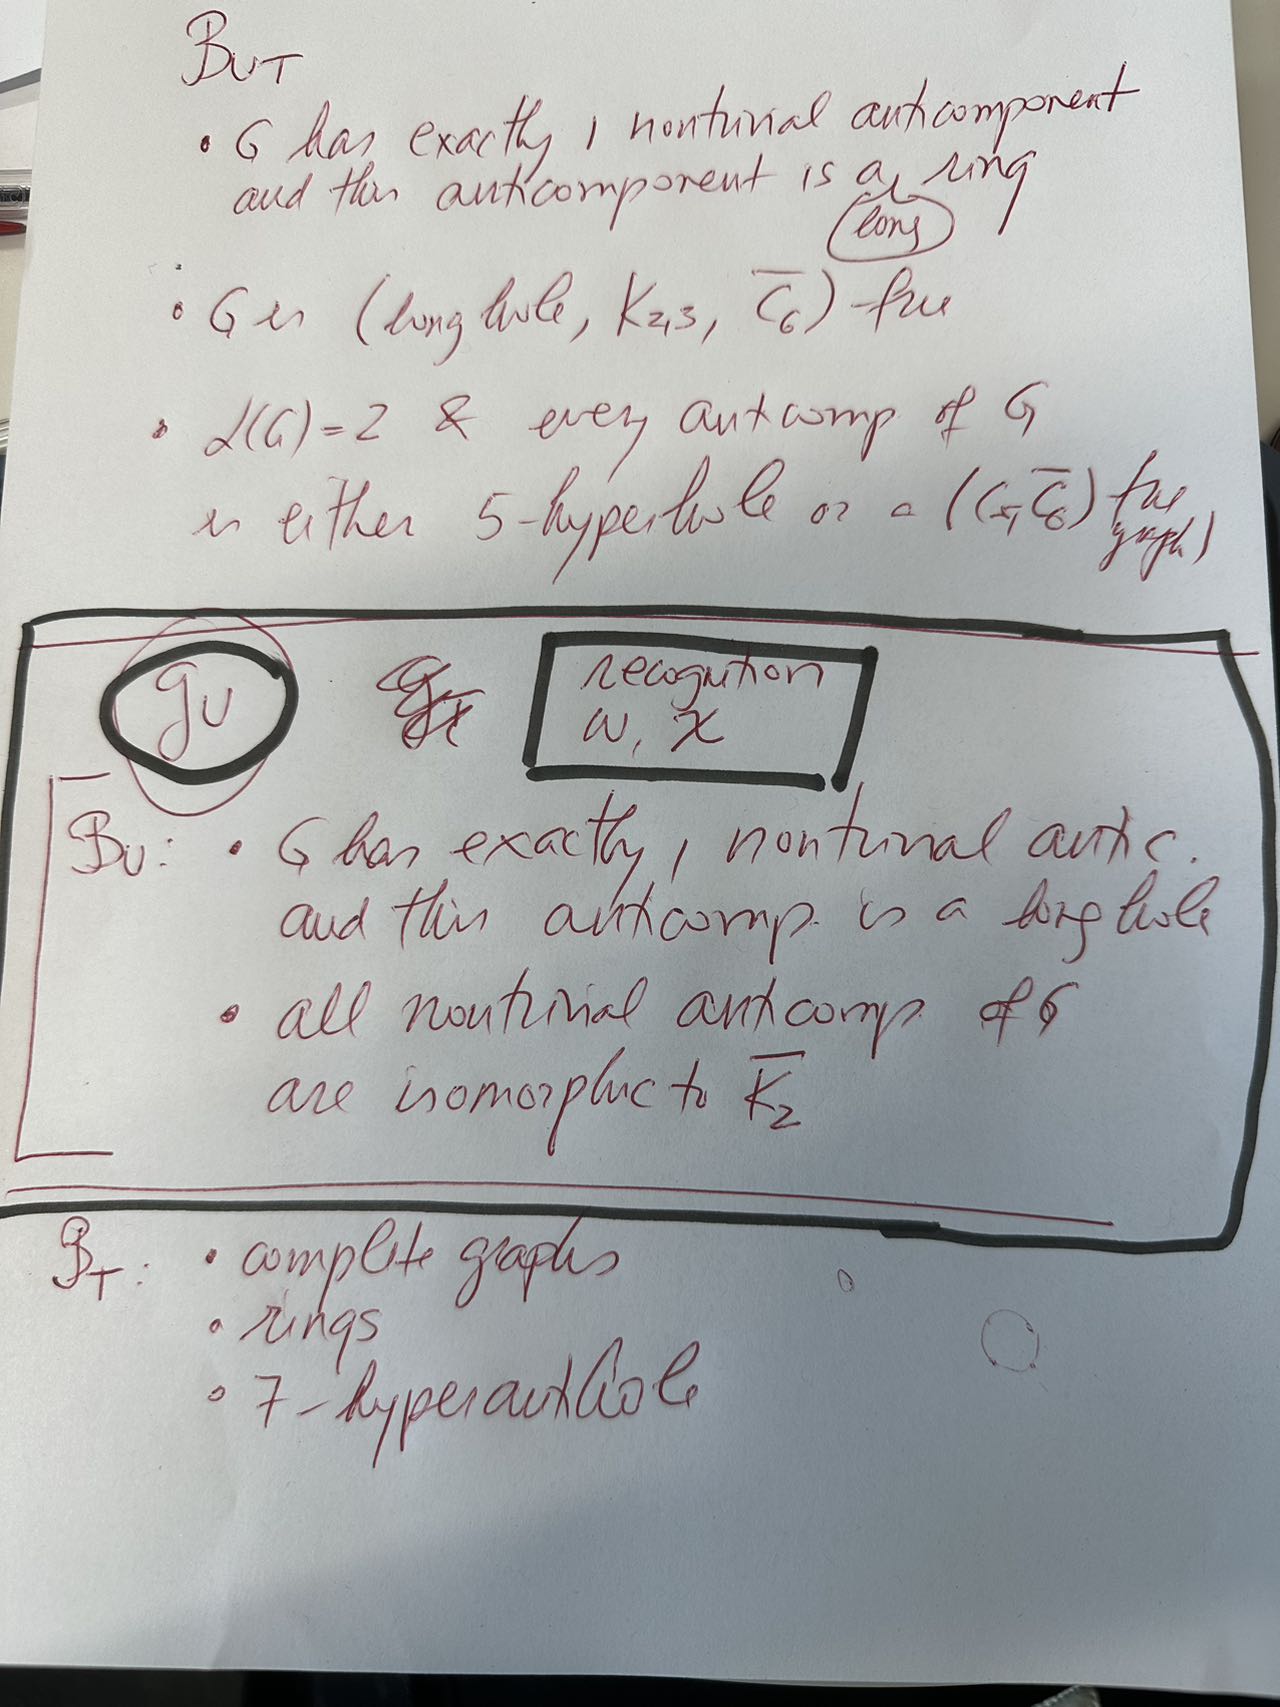 B_UT
• G has exactly 1 nontrivial anticomponent
and this anticomponent is a ring
long
• G is (long hole, K_{2,3}, \overline{C_6}) -free
• α(G)=2 & every anticomp. of G
is either 5-hyperhole or a (C_5, \overline{C_6}) free
graph)
G_U recognition
ω, χ
B_U: • G has exactly 1 nontrivial antic.
and this anticomp. is a long hole
• all nontrivial anticomp. of G
are isomorphic to \overline{K_2}
B_T: • complete graphs
• rings
• 7-hyperantihole